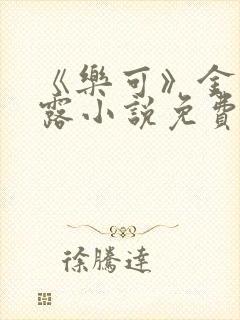 《樂可》金
露小說免費
徐騰達